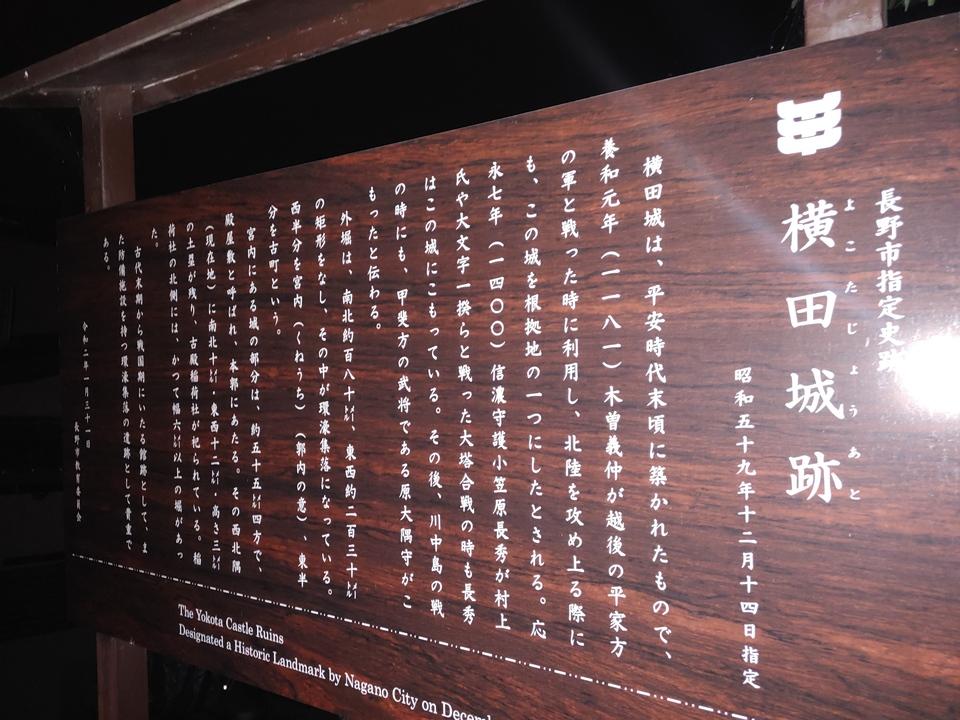 長野市指定史跡
よこたじょうあと
横田城跡
昭和五十九年十二月十四日指定
横田城は、平安時代末頃に築かれたもので、
養和元年（一一八一）木曽義仲が越後の平家方
の軍と戦った時に利用し、北陸を攻め上る際に
も、この城を根拠地の一つにしたとされる。応
永七年（一四〇〇）信濃守護小笠原長秀が村上
氏や大文字一揆らと戦った大塔合戦の時も長秀
はこの城にこもっている。その後、川中島の戦
の時にも、甲斐方の武将である原大隅守がこ
もったと伝わる。
外堀は、南北約百八十㍍、東西約二百三十㍍
の矩形をなし、その中が環濠集落になっている。
西半分を宮内（くねうち）（郭内の意）、東半
分を古町という。
宮内にある城の部分は、約五十五㍍四方で、
殿屋敷と呼ばれ、本郭にあたる。その西北隅
（現在地）に南北十㍍・東西十二㍍・高さ三㍍
の土塁が残り、古殿稲荷社が祀られている。稲
荷社の北側には、かつて幅六㍍以上の堀があっ
た。
古代末期から戦国期にいたる館跡として、ま
た防備施設を持つ環濠集落の遺跡として貴重で
ある。
令和二年一月三十一日
長野市教育委員会
The Yokota Castle Ruins
Designated a Historic Landmark by Nagano City on